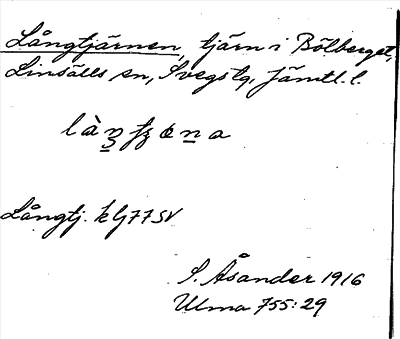 Långtjärnen, tjärn i Bölberget,
Linsälls sn, Svegs tg, Jämtl. l.
Långtj. kbj 77 SV
S. Åsander 1916
Ulma 755:29